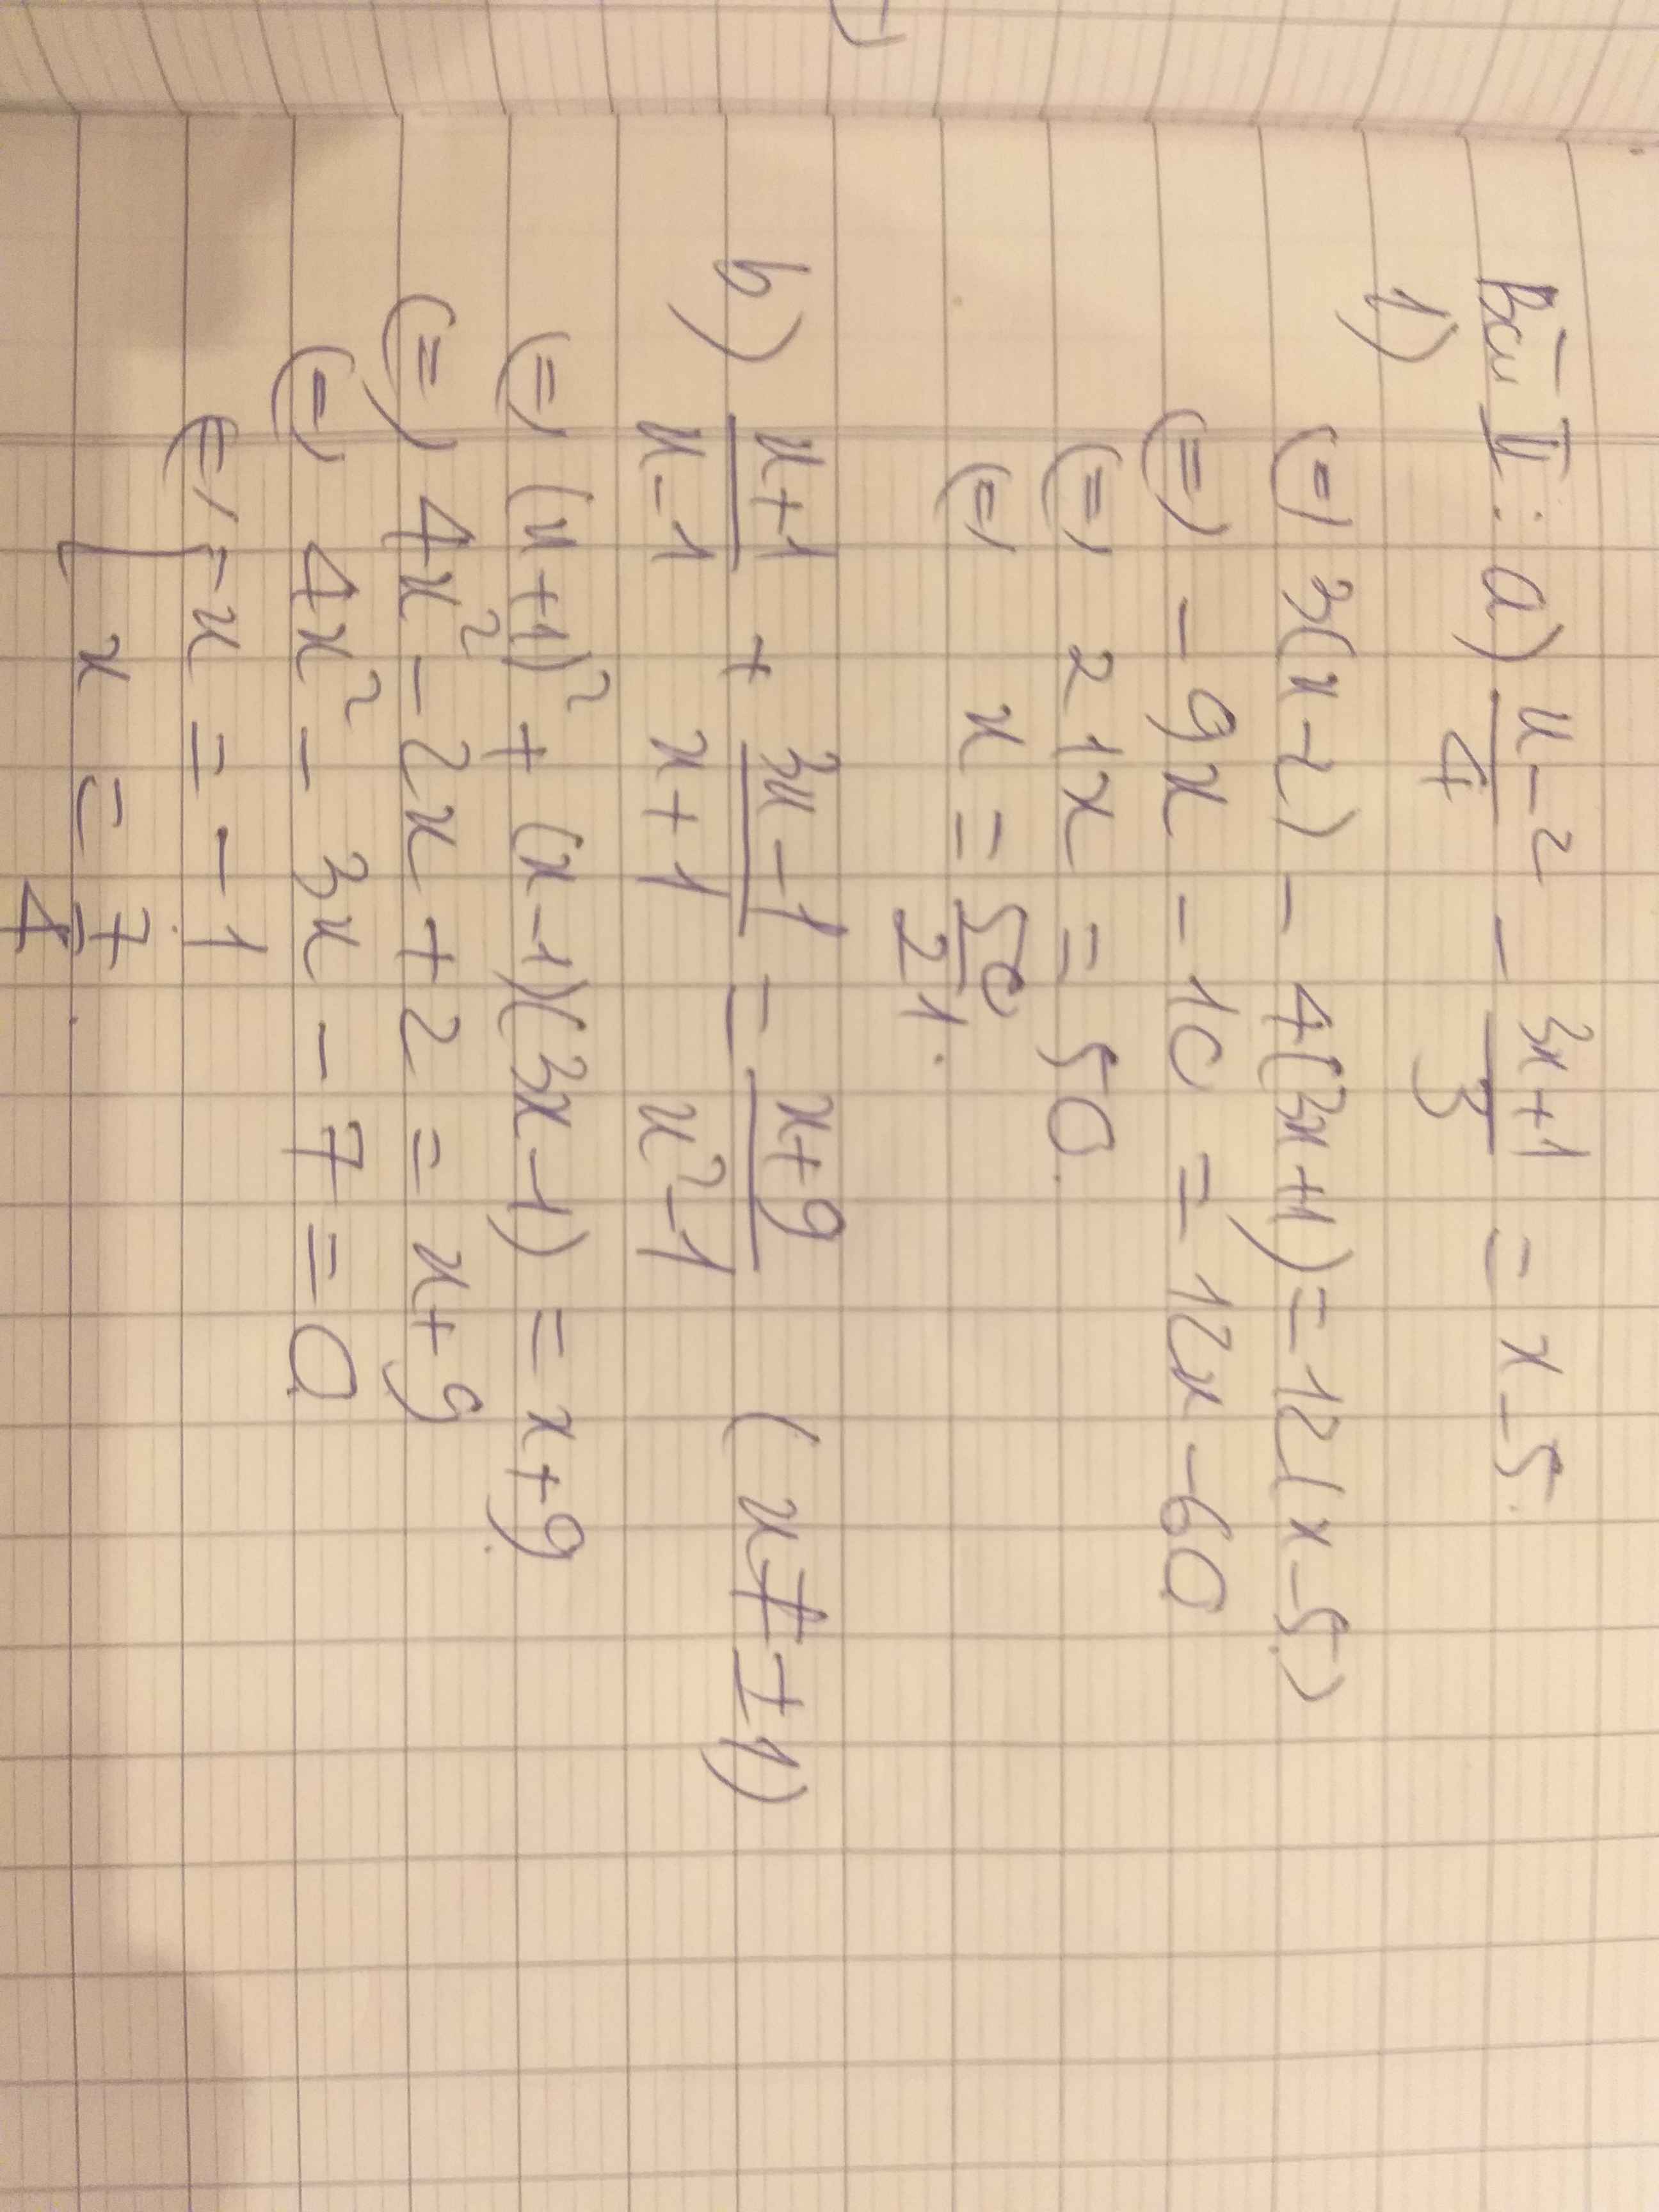 Bài II: a) x-2/4 - 3x+1/3 = x-5.
1)
(=) 3(x-2) - 4(3x+1) = 12(x-5)
(=) -9x - 10 = 12x - 60
(=) 21x = 50
(=) x = 50/21.
b) x+1/x-1 + 3x-1/x+1 = x+9/x²-1 (x ≠ ±1)
(=) (x+1)² + (x-1)(3x-1) = x+9.
(=) 4x² - 2x + 2 = x+9
(=) 4x² - 3x - 7 = 0
(=) [ x = -1
x = 7/4.